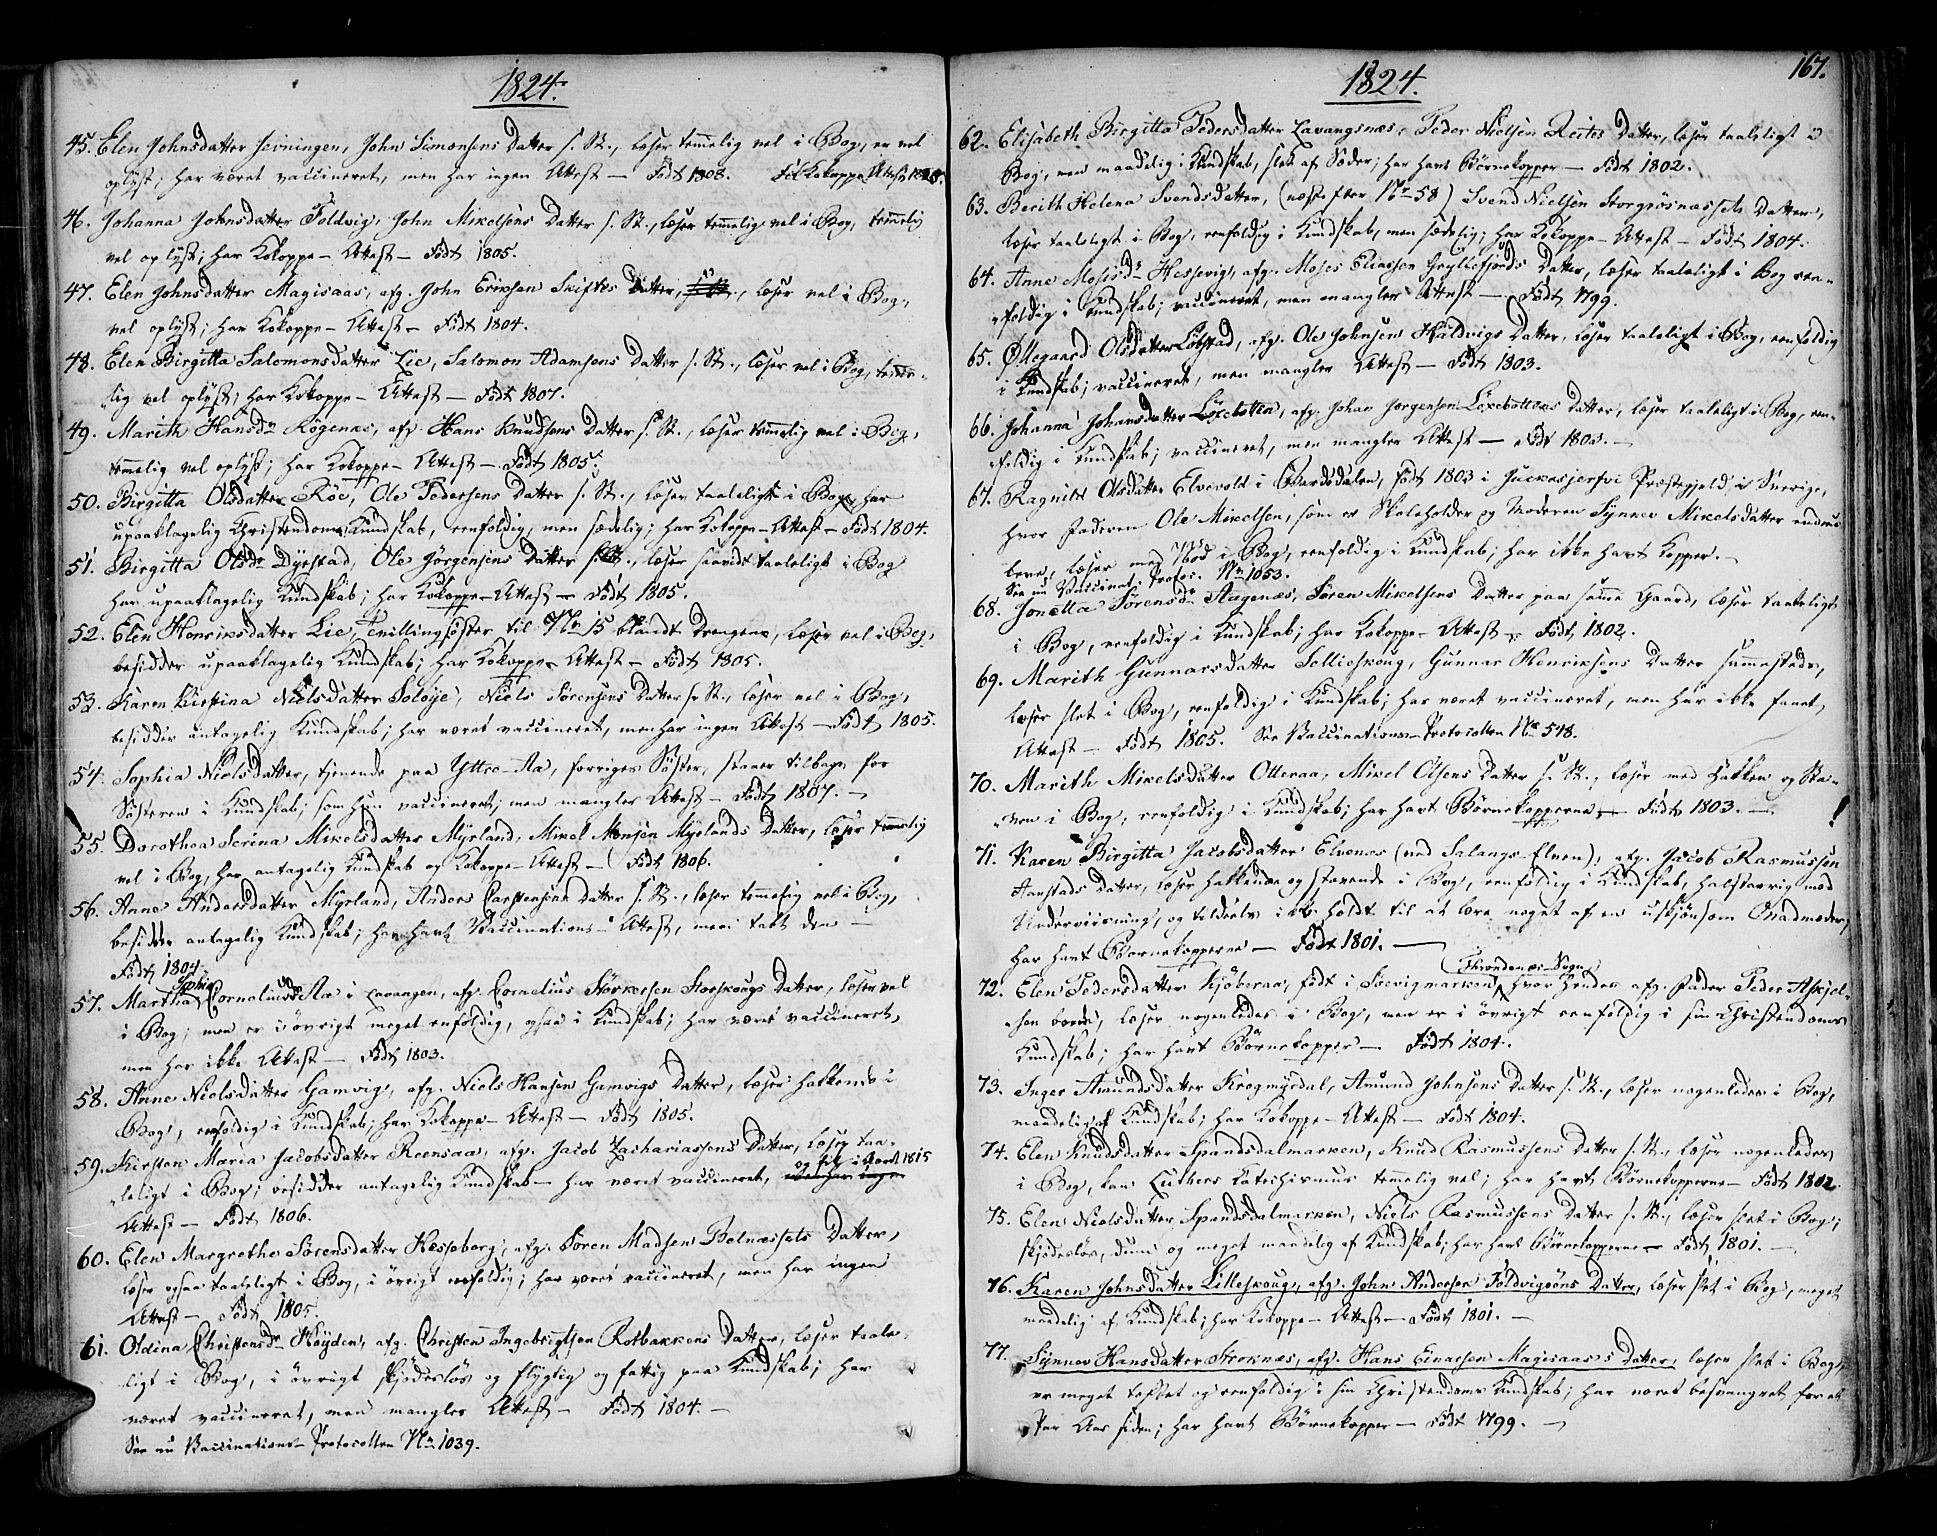 1824.
45. Elen Johnsdatter Jervningen, John Simonsens Datter s. St., læser temmelig vel i Bog, er vel
oplyst; har været vaccineret, men har ingen Attest — Født 1808. Fik Kokoppe Attest
46. Johanna Johnsdatter Foldvig, John Mikelsens Datter s. St., læser temmelig vel i Bog, temmelig
vel oplyst; har Kokoppe-Attest — Født 1805.
47. Elen Johnsdatter Magisaas, afg. John Eriksen Skiftes Datter, læser vel i Bog,
vel oplyst; har Kokoppe-Attest — Født 1804.
48. Elen Birgitta Salomonsdatter Lie, Salomon Adamsens Datter s. St., læser vel i Bog, temme-
lig vel oplyst; har Kokoppe-Attest — Født 1807.
49. Marith Hansdr Røgenæs, afg. Hans Knudsens Datter s. St., læser temmelig vel i Bog,
temmelig vel oplyst; har Kokoppe-Attest — Født 1805.
50. Birgitta Olsdatter Röe, Ole Pedersens Datter s. St., læser taaleligt i Bog, har
upaaklagelig Christendoms Kundskab, eenfoldig, men sædelig; har Kokoppe-Attest — Født 1804.
51. Birgitta Olsdr Dyrstad, Ole Jørgensens Datter s. St., læser saavidt taaleligt i Bog
har upaaklagelig Kundskab; har Kokoppe-Attest — Født 1805.
52. Elen Henriksdatter Lie, Tvillingsøster til No 15 blandt Drengene, læser vel i Bog,
besidder upaaklagelig Kundskab; har Kokoppe-Attest — Født 1805.
53. Karen Kirstina Nielsdatter Soløje, Niels Sørensens Datter s. St., læser vel i Bog,
besidder antagelig Kundskab; har været vaccineret, men har ingen Attest — Født 1805.
54. Sophia Nielsdatter, tjenende paa Yttre-Aa, forriges Søster, staaer tilbage for
Søsteren i Kundskab; som hun vaccineret; men mangler Attest — Født 1807. —
55. Dorothea Serina Mikelsdatter Myrland, Mikel Monsen Myrlands Datter, læser temmelig
vel i Bog, har antagelig Kundskab og Kokoppe-Attest — Født 1806.
56. Anne Andersdatter Myrland, Anders Carstensens Datter s. St., læser temmelig vel i Bog,
besidder antagelig Kundskab; har havt Vaccinations-Attest, men tabt den —
Født 1804.
Sophia
57. Martha Corneliusdr Aa i Lavangen, afg. Cornelius Størkersen Storskougs Datter, læser vel
i Bog; men er i øvrigt meget enfoldig, ogsaa i Kundskab; har været vaccineret,
men har ikke Attest — Født 1803.
58. Anne Nielsdatter Gamvig, afg. Niels Hansen Gamvigs Datter, læser hakkende i
Bog, eenfoldig i Kundskab; har Kokoppe-Attest — Født 1805.
59. Kirsten Maria Jacobsdatter Roensaa, afg. Jacob Zachariassens Datter, læser taa-
leligt i Bog; besidder antagelig Kundskab — har været vaccineret, og fik i Aaret 1815
Attest — Født 1806.
60. Elen Margrethe Sørensdatter Hesseberg, afg. Søren Madsen Belnæssets Datter,
læser ogsaa taaleligt i Bog, i øvrigt eenfoldig; har været vaccineret, men har ingen
Attest — Født 1805.
61. Oldina Christensdr Høyden, afg. Christen Ingebrigtsen Rotbakkens Datter, læser taale-
ligt i Bog, i øvrigt skjødesløs og flygtig og fattig paa Kundskab; har
været vaccineret, men mangler Attest — Født 1804. —
See nu Vaccinations-Protocollen No 1039.
1824.
167.
62. Elisabeth Birgitta Pedersdatter Lavangsnæs, Peder Nielsen Reites Datter, læser taaleligt i
Bog, men maadelig i Kundskab, slet af Sæder; har havt Børnekopper — Født 1802.
63. Berith Helena Svendsdatter, (næst efter No 58) Svend Nielsen Storgrøsnæssets Datter,
læser taaleligt i Bog, eenfoldig i Kundskab, men sædelig; har Kokoppe-Attest — Født 1804.
64. Anne Mosesdr Hessevig, afg. Moses Eliassen Gryllefjords Datter, læser taaleligt i Bog, een-
foldig i Kundskab; vaccineret, men mangler Attest — Født 1799.
65. Ollegaard Olsdatter Løbstad, afg. Ole Johnsen Haldvigs Datter, læser taaleligt i Bog, eenfoldig
i Kundskab; vaccineret, men mangler Attest — Født 1803.
66. Johanna Johansdatter Løxebotten, afg. Johan Jørgensen Løxebottens Datter, læser taaleligt i Bog, een-
foldig i Kundskab; vaccineret, men mangler Attest — Født 1803. —
67. Ragnild Olsdatter Elvevold i Bardodalen, født 1803 i Juckasjerfvi Præstegjeld i Sverige,
hvor Faderen Ole Mikelsen, som er Skoleholder og Moderen Synnev Mikelsdatter endnu
leve, læser med Nød i Bog, eenfoldig i Kundskab; har ikke havt Kopper. —
See nu Vaccinat. Protoc. No 1053.
68. Jonetta Sørensdr Aagenæs, Søren Mikelsens Datter paa samme Gaard, læser taaleligt
i Bog, eenfoldig i Kundskab; har Kokoppe-Attest — Født 1802.
69. Marith Gunnarsdatter Sellieskoug, Gunnar Henriksens Datter sammesteds,
læser slet i Bog, eenfoldig i Kundskab; har været vaccineret, men har ikke faaet
Attest — Født 1805. See Vaccinations-Protocollen No 548.
70. Marith Mikelsdatter Otteraa, Mikel Olsens Datter s. St., læser med Hakken og Sta-
ven i Bog, eenfoldig i Kundskab; har havt Børnekopperne — Født 1803. —
71. Karen Birgitta Jacobsdatter Elvenæs (ved Salangs-Elven), afg. Jacob Rasmussen
Aanstads Datter, læser hakkende og stavende i Bog, eenfoldig i Kundskab, halstarrig mod
Underviisning, og tildeels ikke holdt til at lære noget af en uskjønsom Madmoder,
har havt Børnekopperne — Født 1801. —
Throndenæs-Sogn
72. Elen Pedersdatter Kjøberaa, født i Soevigmarken, hvor hendes afg. Fader Peder Askjel-
sen boede, læser nogenledes i Bog, men er i øvrigt eenfoldig i sin Christendoms
Kundskab; har havt Børnekopper — Født 1804.
73. Inger Amundsdatter Krogmyrdal, Amund Johnsens Datter s. St., læser nogenledes i Bog,
maadelig af Kundskab; har Kokoppe-Attest — Født 1804.
74. Elen Knudsdatter Spandsdalmarken, Knud Rasmussens Datter s. St., læser nogenledes
i Bog, kan Luthers Catechismus temmelig vel; har havt Børnekopperne — Født 1802.
75. Elen Nielsdatter Spandsdalmarken, Niels Rasmussens Datter s. St., læser slet i Bog,
skjødesløs, dum og meget maadelig af Kundskab; har havt Børnekopperne — Født 1801. —
76. Karen Johnsdatter Lilleskoug, afg. John Andersen Foldvigeøns Datter, læser slet i Bog, meget
maadelig af Kundskab; har Kokoppe-Attest — Født 1801. —
77. Synnev Hansdatter Stroknæs, afg. Hans Einarsen Magisaas's Datter, læser slet i Bog,
er meget og eenfoldig i sin Christendoms Kundskab; har været besvangret for et
Par Aar siden; har havt Børnekopper — Født 1799. —